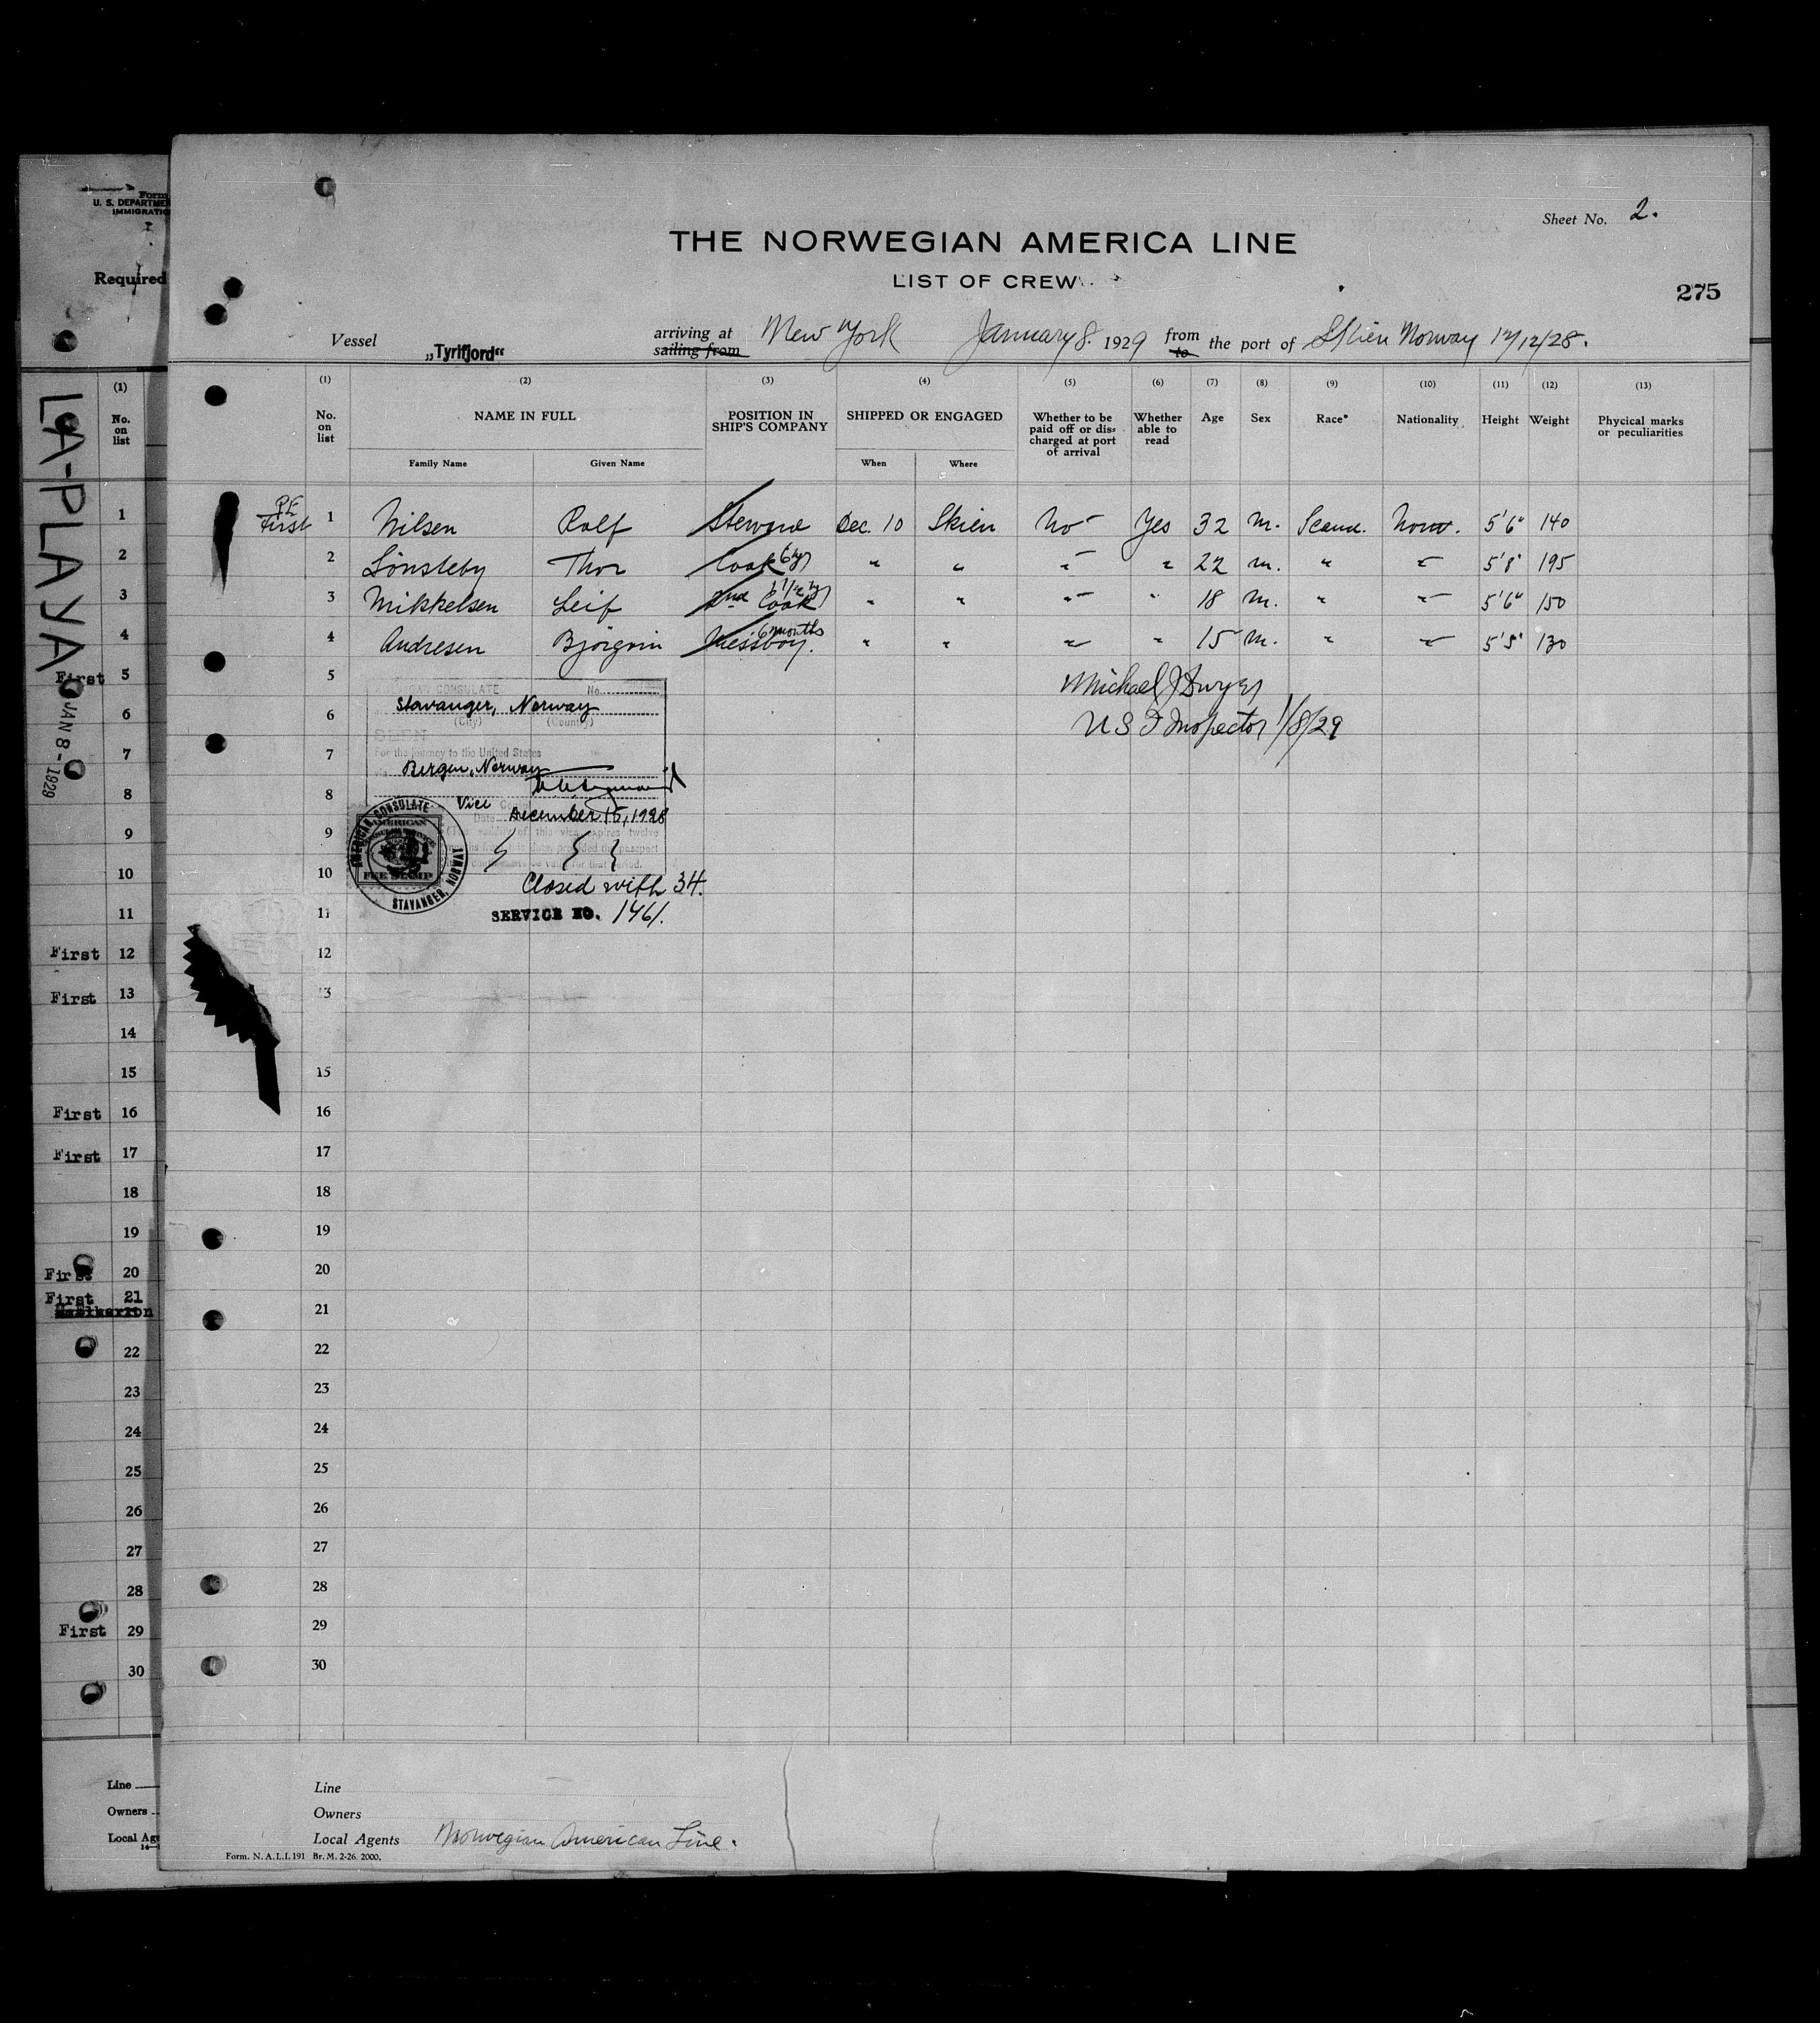 Form
U. S. DEPARTME
IMMIGRATIO
Required
LA-PLAYA
JAN 8 - 1929
(1)
No.
on
list
1
2
3
4
First 5
6
7
8
9
10
11
First 12
First 13
14
15
First 16
First 17
18
19
First 20
First 21
22
23
24
25
26
27
28
First 29
30
Line
Owners
Local Age
Sheet No. 2.
THE NORWEGIAN AMERICA LINE
LIST OF CREW
275
Vessel „Tyrifjord“ arriving at sailing from New York January 8. 1929 from to the port of Skien Norway 12/12/28.
(1) (2) (3) (4) (5) (6) (7) (8) (9) (10) (11) (12) (13)
No. on list NAME IN FULL POSITION IN SHIP'S COMPANY SHIPPED OR ENGAGED Whether to be paid off or dis= charged at port of arrival Whether able to read Age Sex Race* Nationality Height Weight Phycical marks or peculiarities
Family Name Given Name When Where
First 1 Nilsen Rolf Steward Dec. 10 Skien No - Yes 32 m. Scand. Norw. 5'6" 140
2 Lönsleby Thor Cook 6 y " " " - " 22 m. " " 5'8" 195
3 Mikkelsen Leif 2nd Cook 1 1/2 y " " " - " 18 m. " " 5'6" 150
4 Andresen Bjorgvin Messboy. 6 months " " " " 15 m. " " 5'5" 130
5 Michael J Dwyer
6 U S I Inspector 1/8/29
7
8
9
10
11
12
13
15
16
17
18
19
20
21
22
23
24
25
26
27
28
29
30
CONSULATE No.
Stavanger, Norway
(City) (Country)
SEEN
For the journey to the United States
Bergen, Norway
Vice
Date December 15, 1928
AMERICAN CONSULATE
STAVANGER, NORWAY
AMERICAN
FEE STAMP
Closed with 34.
SERVICE NO. 1461.
Line
Owners
Local Agents Norwegian American Line.
Form. N. A. L. I. 191 Br. M. 2-26. 2000.